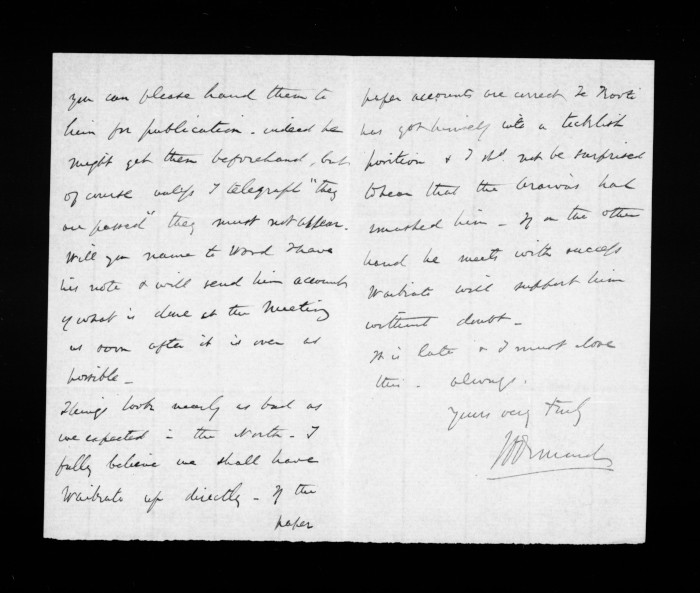 you can please hand them to
him for publication - indeed he
might get them beforehand, but
of course unless I telegraph "they
are passed" they must not appear.
Will you name to Wood I have
his note & will send him accounts
of what is done at the Meeting
as soon after it is over as
possible -
Things look nearly as bad as
we expected in the North - I
fully believe we shall have
Waikato up directly - If the
paper
paper accounts are correct Te Kooti
has got himself into a ticklish
position & I shd. not be surprised
to hear that the Arawas had
smashed him - If on the other
hand he meets with success
Waikato will support him
without doubt -
It is late & I must close
this - always.
Yours very truly
JD Ormond